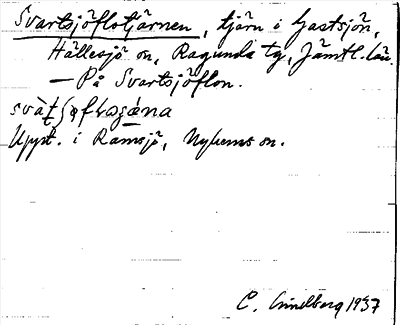 Svartsjöflotjärnen, tjärn i Gastsjön,
Hällesjö sn, Ragunda tg, Jämtl. län.
— På Svartsjöflon.
Uppt. i Ramsjö, Nyhems sn.
C. Lindberg 1937